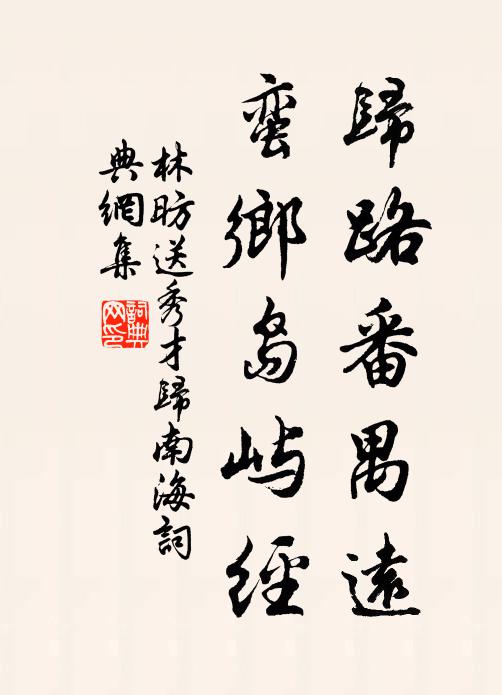 歸路番禺遠
蛮鄉島屿經
林昉送秀才歸南海詞
典網集
詞典
网印